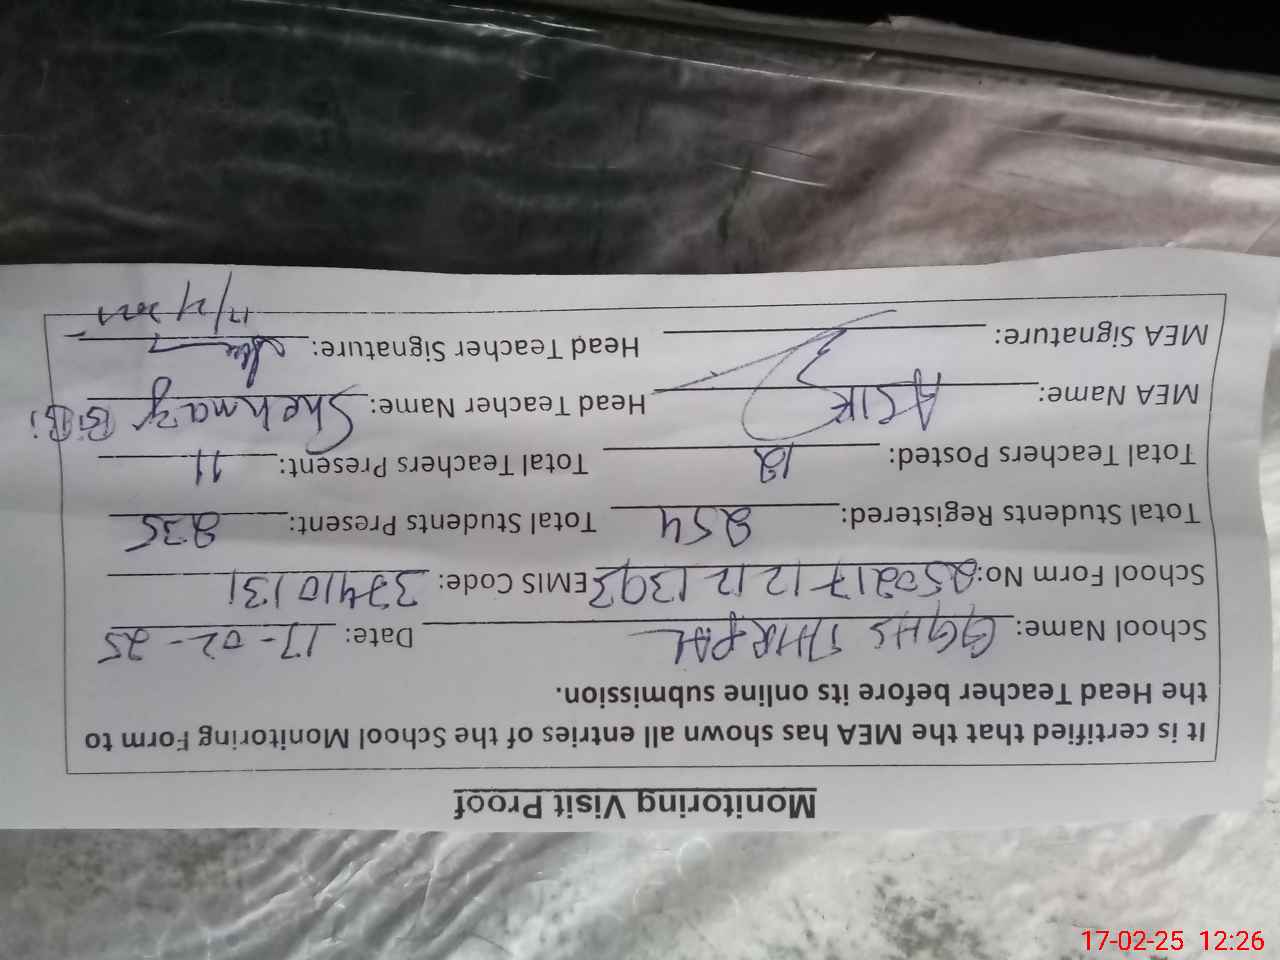 Monitoring Visit Proof
It is certified that the MEA has shown all entries of the School Monitoring Form to
the Head Teacher before its online submission.
School Name: GGHS THRPAL Date: 17-02-25
School Form No: 25021712121393 EMIS Code: 37410131
Total Students Registered: 254 Total Students Present: 235
Total Teachers Posted: 12 Total Teachers Present: 11
MEA Name: ASIF Head Teacher Name: Shehnaz BiBi
MEA Signature: Head Teacher Signature:
17-02-25 12:26